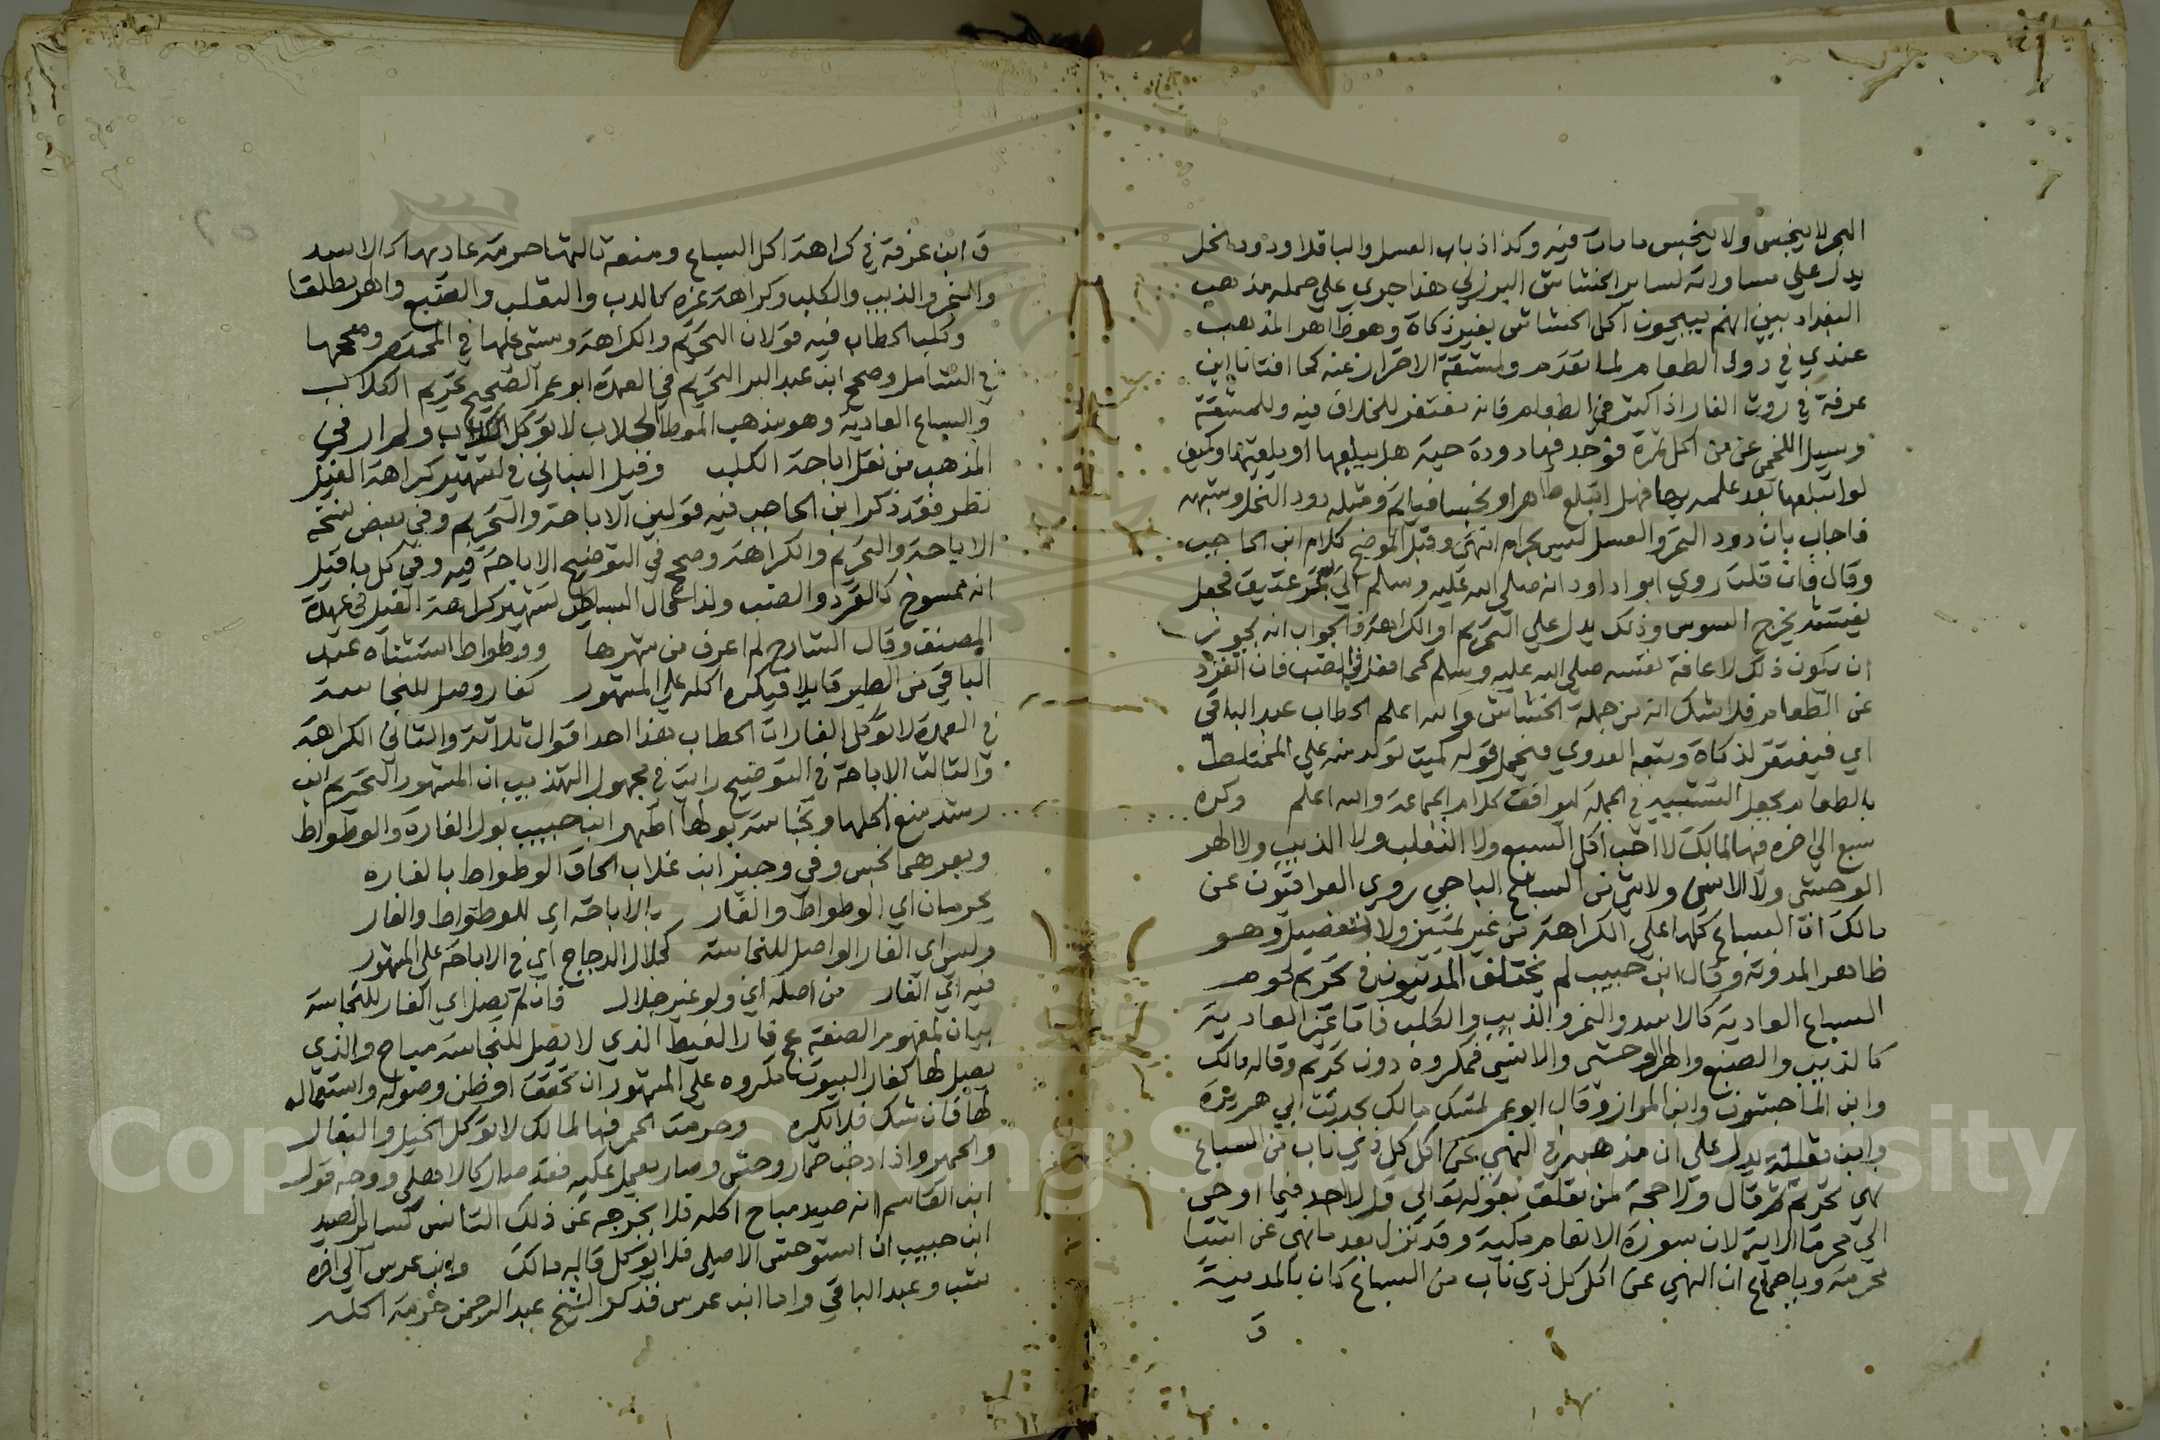 البحر لا ينجس ولا ينجس ما مات فيه وكذا ذباب العسل والباقلا ودود النخل
يدل على مساواته لسائر الخشاش البرزلي هذا جري على جملة مذهب
البغداديين انهم يبيحون اكل الخشاش بغير ذكاة وهو ظاهر المذهب
عندي في دود الطعام لما تقدم ولمشقة الاحتراز عنه كما افتانا ابن
عرفة في روث الفار اذا كثر في الطعام فانه مغتفر للخلاف فيه وللمشقة
وسيل اللخمي عن من اكل تمرة فوجد فيها دودة حية هل يبلعها او يلقيها وكيف
لو ابتلعها بعد علمه بها فهل ابتلع طاهرا او نجسا فياثم ومثله دود النخل وشبهه
فاجاب بان دود التمر والعسل ليس بحرام انتهى وقبل الموضح كلام ابن الحاجب
وقال فان قلت روي ابو داود انه صلى الله عليه وسلم اتي بتمر عتيق فجعل
يفتشه يخرج السوس وذلك يدل على التحريم او الكراهة فالجواب انه يجوز
ان يكون ذلك لاعافة نفسه صلى الله عليه وسلم كما فعل في الضب فان انفرد
عن الطعام فلا شك انه من جملة الخشاش والله اعلم الحطاب عبد الباقي
اي فيفتقر لذكاة وتبعه العدوي فيحمل قوله كميت تولد منه على المختلط
بالطعام بجعل التشبيه في الجملة ليوافق كلام الجماعة والله اعلم وكره
سبع الى اخره فيها لمالك لا احب اكل السبع ولا الثعلب ولا الذيب ولا الهر
الوحشي ولا الانسي ولا شي من السباع الباجي روي العراقيون عن
مالك ان السباع كلها على الكراهة من غير تمييز ولا تفصيل وهو
ظاهر المدونة وقال ابن حبيب لم يختلف المدنيون في تحريم لحوم
السباع العادية كالاسد والنمر والذيب والكلب فاما غير العادية
كالذيب والضبع والهر الوحشي والانسي فمكروه دون تحريم وقاله مالك
وابن الماجشون وابن المواز وقال ابو عمر تمسك مالك بحديث ابي هريرة
وابن ثعلبة يدل على ان مذهبه في النهي عن اكل كل ذي ناب من السباع
نهي تحريم ثم قال ولا حجة لمن تعلق بقوله تعالى قل لا اجد فيما اوحي
الي محرما الاية لان سورة الانعام مكية وقد نزل بعد ما نهي عن اشيا
محرمة وباجماع ان النهي عن اكل كل ذي ناب من السباع كان بالمدينة
و
و ابن عرفة في كراهة اكل السباع ومنعه ثالثها حرمة عاديها كالاسد
والنمر والذيب والكلب وكراهة غيره كالدب والثعلب والضبع والهر مطلقا
وكلب الحطاب فيه قولان التحريم والكراهة ومشى عليها في المختصر وصححها
في الشامل وصحح ابن عبد البر التحريم في العمدة ابو عمر الصحيح تحريم الكلاب
والسباع العادية وهو مذهب الموطا الجلاب لا توكل الكلاب ولم ار في
المذهب من نقل اباحة الكلب وفيل البناني في تشهير كراهة الفيل
نظر فقد ذكر ابن الحاجب فيه قولين الاباحة والتحريم وفي بعض نسخه
الاباحة والتحريم والكراهة وصحح في التوضيح الاباحة فيه وفي كل ما قيل
انه ممسوخ كالقرد والضب ولذا قال البساطي تشهير كراهة الفيل في عهدة
المصنف وقال الشارح لم اعرف من شهرها ووطواط استثناه عبد
الباقي من الطير قايلا فيكره اكله على المشهور كفار وصل للنجاسة
في العمدة لا توكل الفارات الحطاب هذا احد اقوال ثلاثة والثاني الكراهة
والثالث الاباحة في التوضيح رايت في مجهول التهذيب ان المشهور التحريم ابن
رشد منع اكلها ونجاسة بولها اظهر ابن حبيب بول الفارة والوطواط
وبعرهما نجس وفي وجيز ابن غلاب الحاق الوطواط بالفارة
يحرمان اي الوطواط والفار بالاباحة اي للوطواط والفار
وليس اي الفار الواصل للنجاسة كجلال الدجاج اي في الاباحة على المشهور
فيه اي الفار من اصله اي ولو غير جلال فان لم يصل اي الفار للنجاسة
بيان لمفهوم الصفة عج فار الغيط الذي لا يصل للنجاسة مباح والذي
يصل لها كفار البيوت مكروه على المشهور ان تحقق او ظن وصوله واستعماله
لها فان شك فلا يكره وحرمت الحمر فيها لمالك لا توكل الخيل والبغال
والحمير واذا دجن حمار وحشي وصار يعمل عليه فقد صار كالاهلي ووجه قول
ابن القاسم انه صيد مباح اكله فلا يخرجه عن ذلك التانس كسائر الصيد
ابن حبيب ان استوحش الاصلي فلا يوكل قاله مالك وابن عرس الى اخره
شب وعبد الباقي واما ابن عرس فذكر الشيخ عبد الرحمن حرمة اكله
Copyright © King Saud University